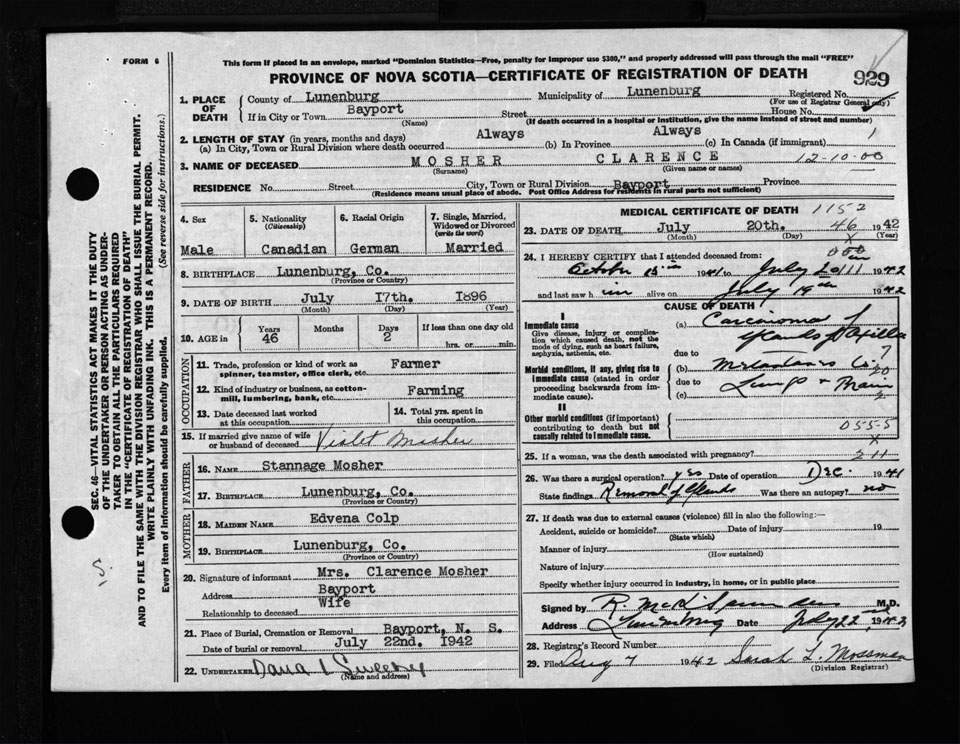 FORM 6
This form if placed in an envelope, marked "Dominion Statistics—Free, penalty for improper use $300," and properly addressed will pass through the mail "FREE"
PROVINCE OF NOVA SCOTIA—CERTIFICATE OF REGISTRATION OF DEATH
929
1. PLACE OF DEATH
County of Lunenburg Municipality of Lunenburg Registered No.
(For use of Registrar General only)
If in City or Town Bayport Street House No.
(Name) (If death occurred in a hospital or institution, give the name instead of street and number)
2. LENGTH OF STAY (in years, months and days)
(a) In City, Town or Rural Division where death occurred Always (b) In Province Always (c) In Canada (if immigrant)
3. NAME OF DECEASED MOSHER CLARENCE 12-10-00
(Surname) (Given name or names)
RESIDENCE No. Street City, Town or Rural Division Bayport Province
(Residence means usual place of abode. Post Office Address for residents in rural parts not sufficient)
4. Sex Male
5. Nationality (Citizenship) Canadian
6. Racial Origin German
7. Single, Married, Widowed or Divorced (write the word) Married
8. BIRTHPLACE Lunenburg, Co.
(Province or Country)
9. DATE OF BIRTH July 17th. 1896
(Month) (Day) (Year)
10. AGE in Years 46 Months Days 2 If less than one day old hrs. or min.
OCCUPATION
11. Trade, profession or kind of work as spinner, teamster, office clerk, etc. Farmer
12. Kind of industry or business, as cotton-mill, lumbering, bank, etc. Farming
13. Date deceased last worked at this occupation
14. Total yrs. spent in this occupation
15. If married give name of wife or husband of deceased Violet Mosher
FATHER
16. NAME Stannage Mosher
17. BIRTHPLACE Lunenburg, Co.
(Province or Country)
MOTHER
18. MAIDEN NAME Edvena Colp
19. BIRTHPLACE Lunenburg, Co.
(Province or Country)
20. Signature of informant Mrs. Clarence Mosher
Address Bayport
Relationship to deceased Wife
21. Place of Burial, Cremation or Removal Bayport, N. S.
Date of burial or removal July 22nd. 1942
22. UNDERTAKER
(Name and address)
MEDICAL CERTIFICATE OF DEATH 1152
23. DATE OF DEATH July 20th. 46 1942
(Month) (Day) (Year)
24. I HEREBY CERTIFY that I attended deceased from:
October 15th 1941 to July 20 1942
and last saw h im alive on July 19th 1942
CAUSE OF DEATH
I
Immediate cause (a) Carcinoma of
Give disease, injury or complication which caused death, not the mode of dying, such as heart failure, asphyxia, asthenia, etc.
Glands of Axilla
due to
Morbid conditions, if any, giving rise to immediate cause (stated in order proceeding backwards from immediate cause). (b)
due to Lungs
(c)
II
Other morbid conditions (if important) contributing to death but not causally related to immediate cause. 0555
25. If a woman, was the death associated with pregnancy?
26. Was there a surgical operation? yes Date of operation Dec. 1941
State findings Removal of Glands Was there an autopsy? no
27. If death was due to external causes (violence) fill in also the following:—
Accident, suicide or homicide? Date of injury 19
(State which)
Manner of injury
(How sustained)
Nature of injury
Specify whether injury occurred in industry, in home, or in public place
Signed by M.D.
Address Lunenburg Date July 22nd 1942
28. Registrar's Record Number
29. Filed Aug 7 1942 Sarah L. Mossman
(Division Registrar)
SEC. 46—VITAL STATISTICS ACT MAKES IT THE DUTY
OF THE UNDERTAKER OR PERSON ACTING AS UNDER-
TAKER TO OBTAIN ALL THE PARTICULARS REQUIRED
IN THE "CERTIFICATE OF REGISTRATION OF DEATH"
AND TO FILE THE SAME WITH THE DIVISION REGISTRAR WHO SHALL ISSUE THE BURIAL PERMIT.
WRITE PLAINLY WITH UNFADING INK. THIS IS A PERMANENT RECORD.
Every item of Information should be carefully supplied. (See reverse side for instructions.)